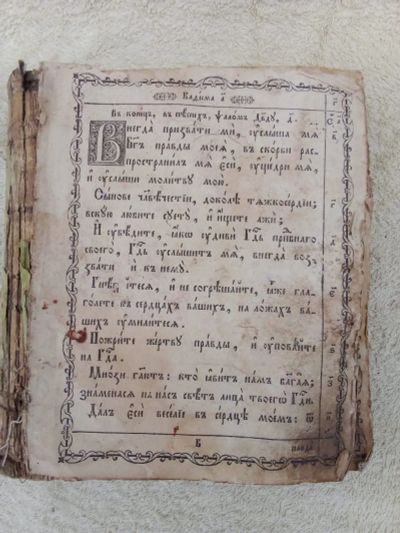 Каѳісма а҃
Въ конецъ, въ пѣснехъ, ѱаломъ Дв҃ду, д҃.
Внегда призвати ми, ᲂу҆слыша мѧ̀
Бг҃ъ правды моеѧ̀, въ скорби рас-
пространилъ мѧ̀ є҆сѝ, ᲂу҆ще́дри мѧ̀,
и҆ ᲂу҆слыши молитвꙋ мою̀.
Сы́нове человѣ́честіи, доколѣ тѧжкосе́рдіи;
вскꙋю лю́бите сꙋетꙋ̀, и҆ и҆́щете лжѝ;
И҆ ᲂу҆вѣ́дите, ꙗ҆́кѡ ᲂу҆дивѝ Гдⷭ҇ь прпⷣбнаго
своего̀, Гдⷭ҇ь ᲂу҆слы́шитъ мѧ̀, внегда̀ воз-
зва́ти мѝ къ немꙋ̀.
Гнѣ́вайтесѧ, и҆ не согрѣша́йте, ꙗ҆̀же гла-
го́лете въ сердца́хъ ва́шихъ, на ло́жахъ ва́-
шихъ ᲂу҆мили́тесѧ.
Пожри́те же́ртвꙋ пра́вды, и҆ ᲂу҆пова́йте
на Гдⷭ҇а.
Мно́зи гл҃ютъ: кто̀ ꙗ҆ви́тъ на́мъ бл҃га́ѧ;
зна́менасѧ на на́съ свѣ́тъ лица̀ твоегѡ̀ Гдⷭ҇и.
Да́лъ є҆сѝ весе́лїе въ се́рдцѣ мое́мъ: ѿ